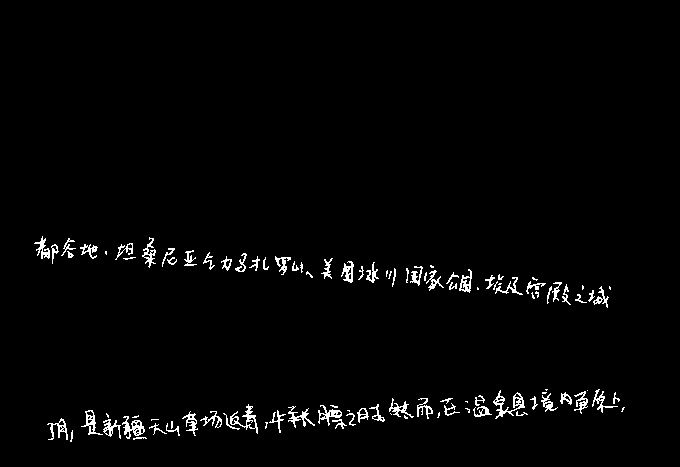 都各地、坦桑尼亚乞力马扎罗山、美国冰川国家公园、埃及宫殿之城
3月,是新疆天山草场返青,牛羊长膘之时。然而,在温泉县境内草原上,